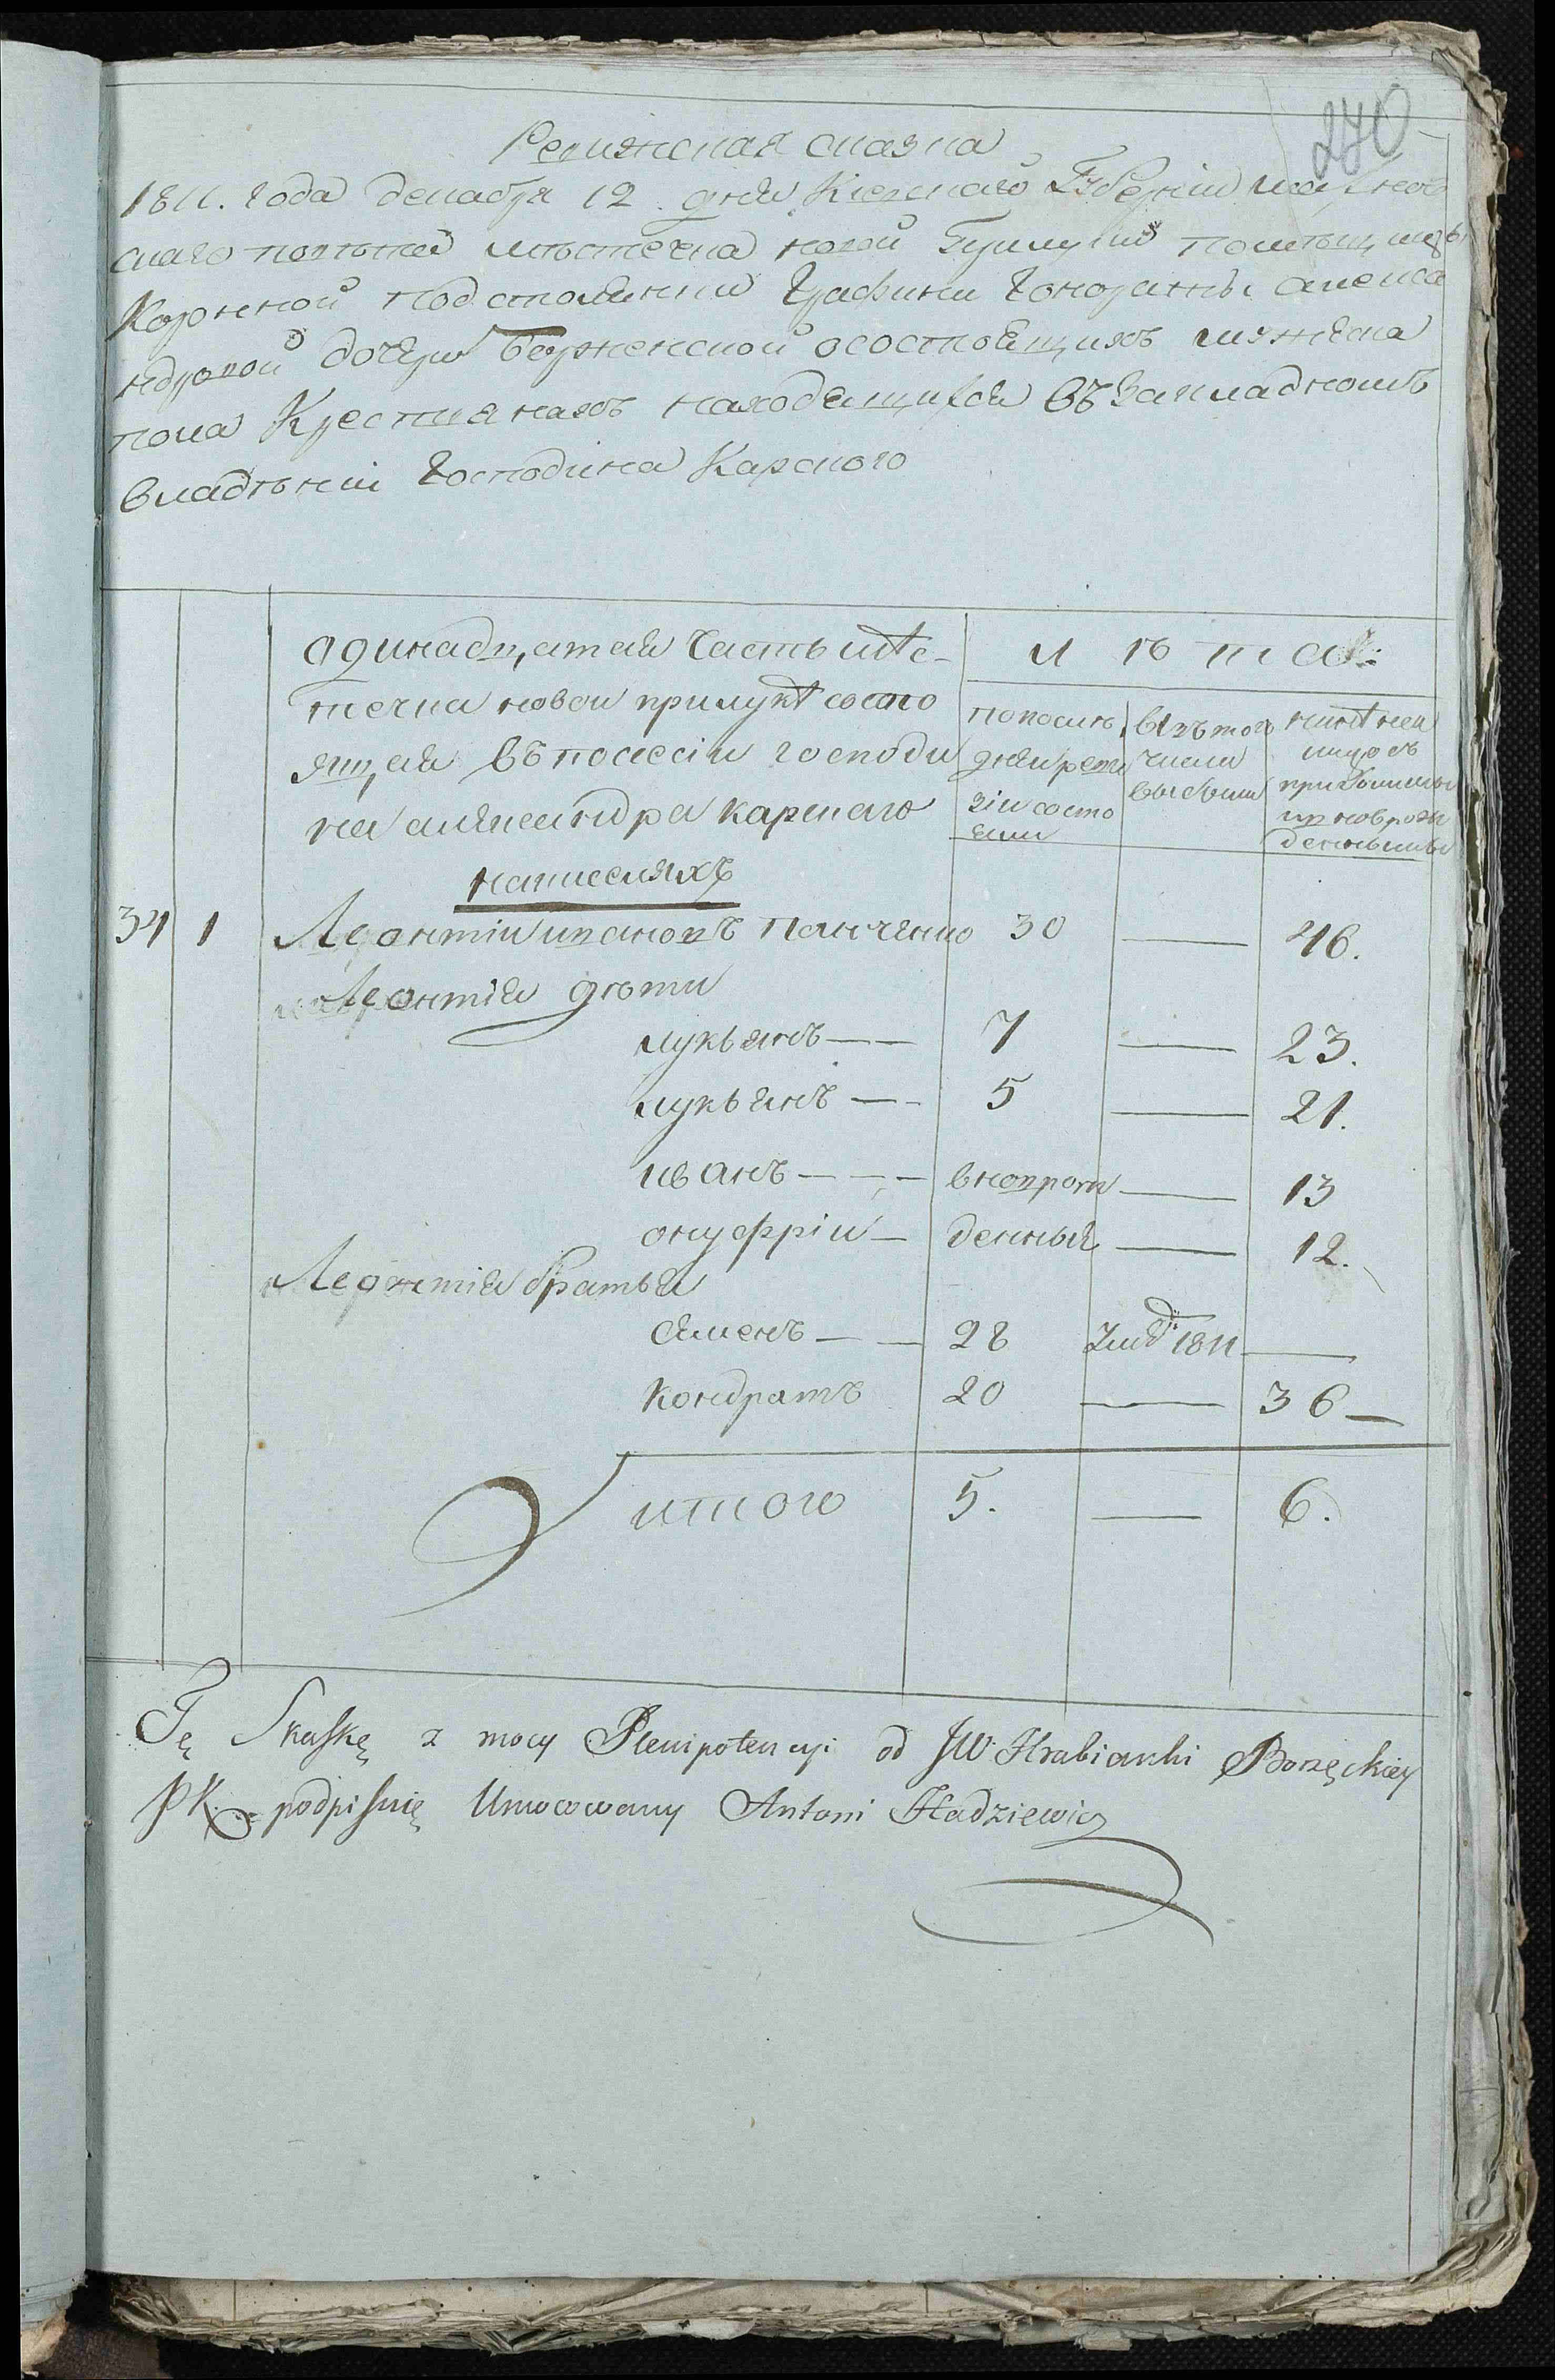 270
Ревизская сказка
1811. года декабря 12 дня Киевской Губерніи махнов
скаго повѣта мѣстечка новой Прилуки помѣщицы
Коронной подстолянки Графини Гоноратты алекса
ндровой дочери Борженской осостоящихъ мужеска
пола Крестиянахъ находящихся въ Закладномъ
владѣніи Господина Карского
одинадцатая часть мѣс-
течка новои прилукѣ состо
ящая въ посессіи господи
на александра карскаго
написенияхъ
лѣта
попослѣ
дней реви
зіи состо
яли
Изъ того
числа
выбыли
нинѣ на
лицо съ
прибылыми
и новрож
денными
34 1 Леонтіи ивановъ Панченко 30 — 46.
Леонтія дѣти
лукьянъ — — 7 — 23.
лукьянъ — — 5 — 21.
иванъ — — — вноврож — 13
онуфріи — денныя — 12.
Леонтія братья
Семенъ — — 28 Умѣ 1811 —
Кондратъ 20 — 36 —
итого 5. — 6.
Tę Skaskę z mocy Plenipotencyi od JW Hrabianki Borzęckiey
PK. podpisuię Umocowany Antoni Hadziewicz